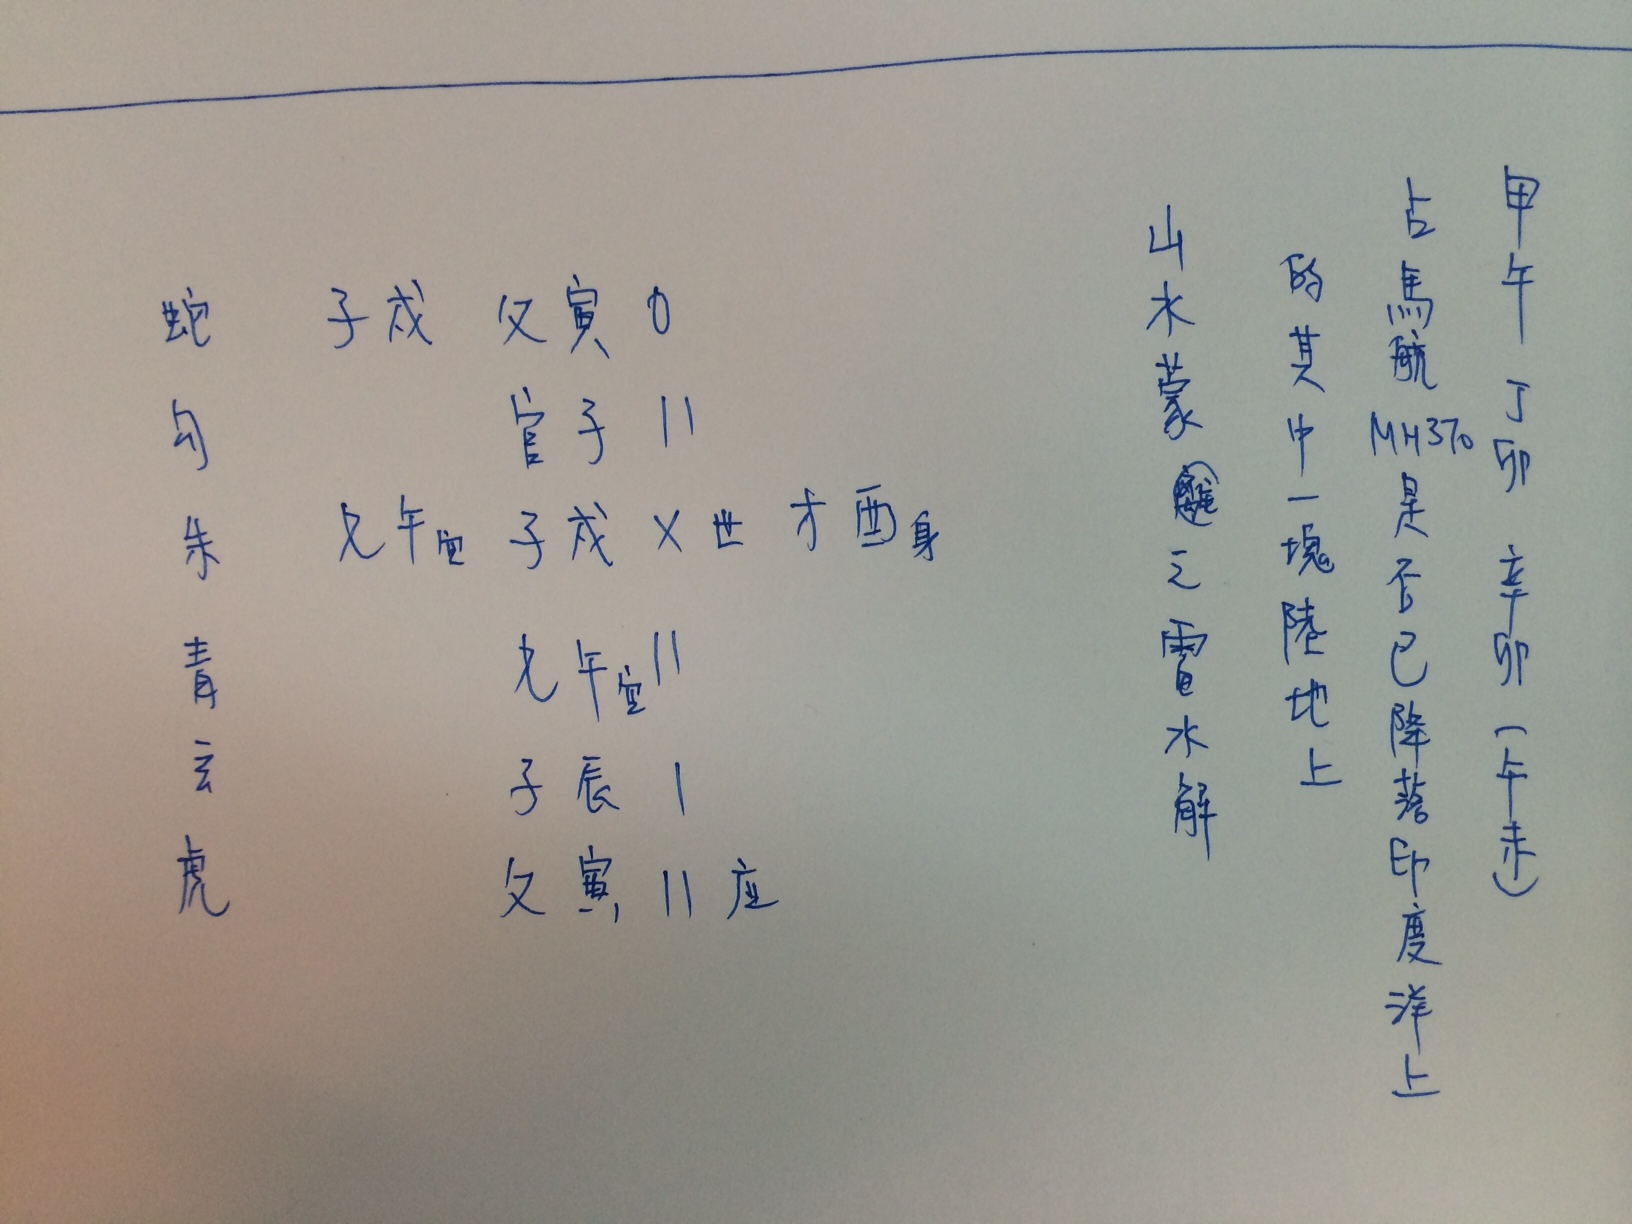 甲午 丁卯 辛卯(午未)
占馬航MH370是否已降落印度洋上
的其中一塊陸地上
山水蒙之雷水解
蛇 子戌 父寅 O
勾 官子 11
朱 兄午空 子戌 X 世 才酉身
青 兄午空 11
玄 子辰 1
虎 父寅 11 应